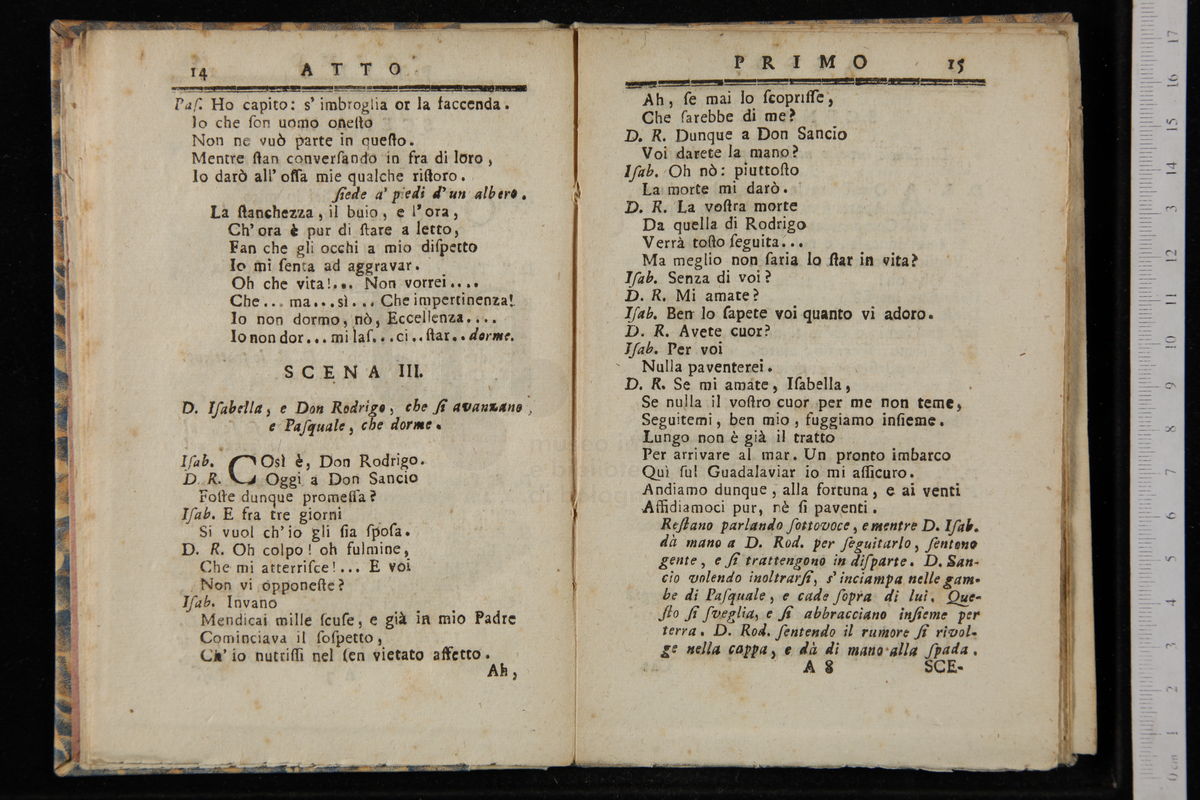 14 ATTO
Paſ. Ho capito: s' imbroglia or la faccenda.
Io che ſon uomo oneſto
Non ne vuò parte in queſto.
Mentre ſtan converſando in fra di loro,
Io darò all' oſſa mie qualche riſtoro.
ſiede a' piedi d'un albero.
La ſtanchezza, il buio, e l'ora,
Ch' ora è pur di ſtare a letto,
Fan che gli occhi a mio diſpetto
Io mi ſenta ad aggravar.
Oh che vita!... Non vorrei....
Che... ma...sì... Che impertinenza!
Io non dormo, nò, Eccellenza....
Io non dor... mi laſ...ci..ſtar..dorme.
SCENA III.
D. Iſabella, e Don Rodrigo, che ſi avanzano,
e Paſquale, che dorme.
Iſab. COsì è, Don Rodrigo.
D. R. Oggi a Don Sancio
Foſte dunque promeſſa?
Iſab. E fra tre giorni
Si vuol ch'io gli ſia ſpoſa.
D. R. Oh colpo! oh fulmine,
Che mi atterriſce!... E voi
Non vi opponeſte?
Iſab. Invano
Mendicai mille ſcuſe, e già in mio Padre
Cominciava il ſoſpetto,
Ch' io nutriſſi nel ſen vietato affetto.
Ah,
PRIMO 15
Ah, ſe mai lo ſcopriſſe,
Che ſarebbe di me?
D. R. Dunque a Don Sancio
Voi darete la mano?
Iſab. Oh nò: piuttoſto
La morte mi darò.
D. R. La voſtra morte
Da quella di Rodrigo
Verrà toſto ſeguita...
Ma meglio non ſaria lo ſtar in vita?
Iſab. Senza di voi?
D. R. Mi amate?
Iſab. Ben lo ſapete voi quanto vi adoro.
D. R. Avete cuor?
Iſab. Per voi
Nulla paventerei.
D. R. Se mi amate, Iſabella,
Se nulla il voſtro cuor per me non teme,
Seguitemi, ben mio, fuggiamo inſieme.
Lungo non è già il tratto
Per arrivare al mar. Un pronto imbarco
Quì ſul Guadalaviar io mi aſſicuro.
Andiamo dunque, alla fortuna, e ai venti
Affidiamoci pur, nè ſi paventi.
Reſtano parlando ſottovoce, e mentre D. Iſab.
dà mano a D. Rod. per ſeguitarlo, ſentono
gente, e ſi trattengono in diſparte. D. San-
cio volendo inoltrarſi, s' inciampa nelle gam-
be di Paſquale, e cade ſopra di lui. Que-
ſto ſi ſveglia, e ſi abbracciano inſieme per
terra. D. Rod. ſentendo il rumore ſi rivol-
ge nella cappa, e dà di mano alla ſpada.
A 8 SCE-